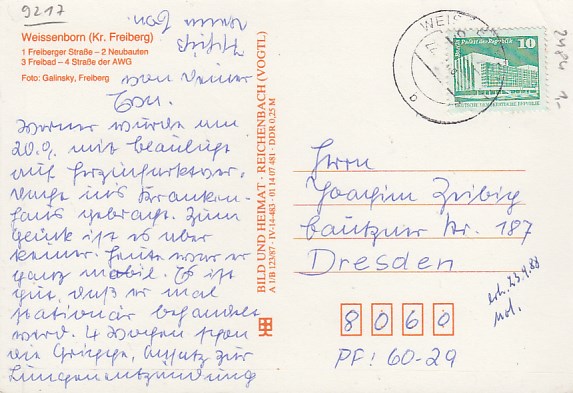 9217
Weissenborn (Kr. Freiberg)
1 Freiberger Straße – 2 Neubauten
3 Freibad – 4 Straße der AWG
Foto: Galinsky, Freiberg
von Deiner
Werner wurde am
20.9. mit blaulicht
auf Herzinfarktver-
dacht ins Kranken-
haus gebracht. Zum
Glück ist es aber
keiner. Heute war er
ganz mobil. Es ist
gut, daß er mal
stationär behandelt
wird. 4 Wochen schon
die Grippe, Ansatz zur
Lungenentzündung
BILD UND HEIMAT · REICHENBACH (VOGTL)
A 1/B 123/87 · IV-14-483 · 01 14 07 481 · DDR 0,25 M
WEISS
10
Palast der Republik
DEUTSCHE DEMOKRATISCHE REPUBLIK
Herrn
Joachim Zeibig
Bautzner Str. 187
Dresden
8060
PF: 60-29
erh. 23.9.88